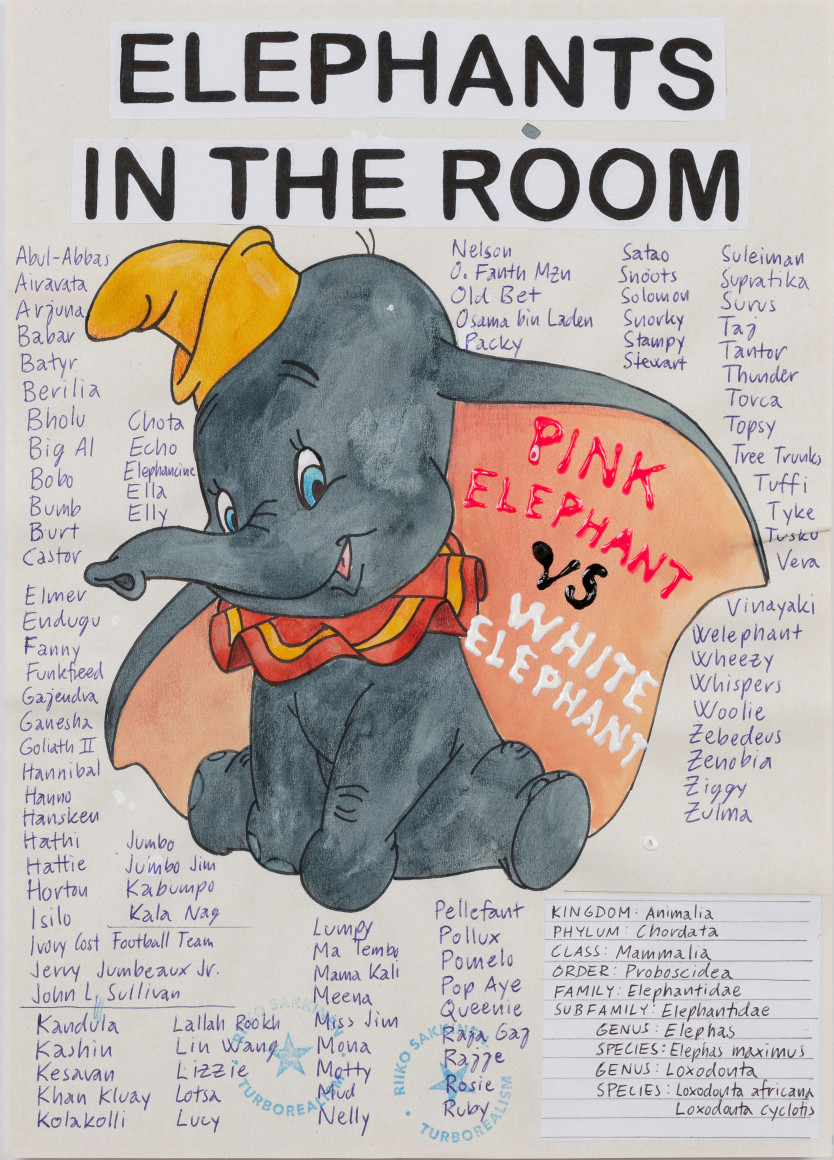 ELEPHANTS
IN THE ROOM
Abul-Abbas
Airavata
Arjuna
Babar
Batyr
Berilia
Bholu
Big Al
Bobo
Bumb
Burt
Castor
Chota
Echo
Elephancine
Ella
Elly
Elmer
Endugu
Fanny
Funkfreed
Gajendra
Ganesha
Goliath II
Hannibal
Hanno
Hansken
Hathi
Hattie
Horton
Isilo
Jumbo
Jumbo Jim
Kabumpo
Kala Nag
Ivory Cost Football Team
Jerry Jumbeaux Jr.
John L. Sullivan
Kandula
Kashin
Kesavan
Khan Kluay
Kolakolli
Lallah Rookh
Lin Wang
Lizzie
Lotsa
Lucy
Lumpy
Ma Tembo
Mama Kali
Meena
Miss Jim
Mona
Motty
Mud
Nelly
Nelson
O. Fanth Mzn
Old Bet
Osama bin Laden
Packy
Pellefant
Pollux
Pomelo
Pop Aye
Queenie
Raja Gaj
Rajje
Rosie
Ruby
Satao
Snoots
Solomon
Snorky
Stampy
Stewart
Suleiman
Supratika
Surus
Taj
Tantor
Thunder
Torca
Topsy
Tree Trunks
Tuffi
Tyke
Tusko
Vera
Vinayaki
Welephant
Wheezy
Whispers
Woolie
Zebedeus
Zenobia
Ziggy
Zulma
PINK
ELEPHANT
VS
WHITE
ELEPHANT
KINGDOM: Animalia
PHYLUM: Chordata
CLASS: Mammalia
ORDER: Proboscidea
FAMILY: Elephantidae
SUBFAMILY: Elephantidae
GENUS: Elephas
SPECIES: Elephas maximus
GENUS: Loxodonta
SPECIES: Loxodonta africana
Loxodonta cyclotis
RIIKO SAKKINEN
TURBOREALISM
RIIKO SAKKINEN
TURBOREALISM